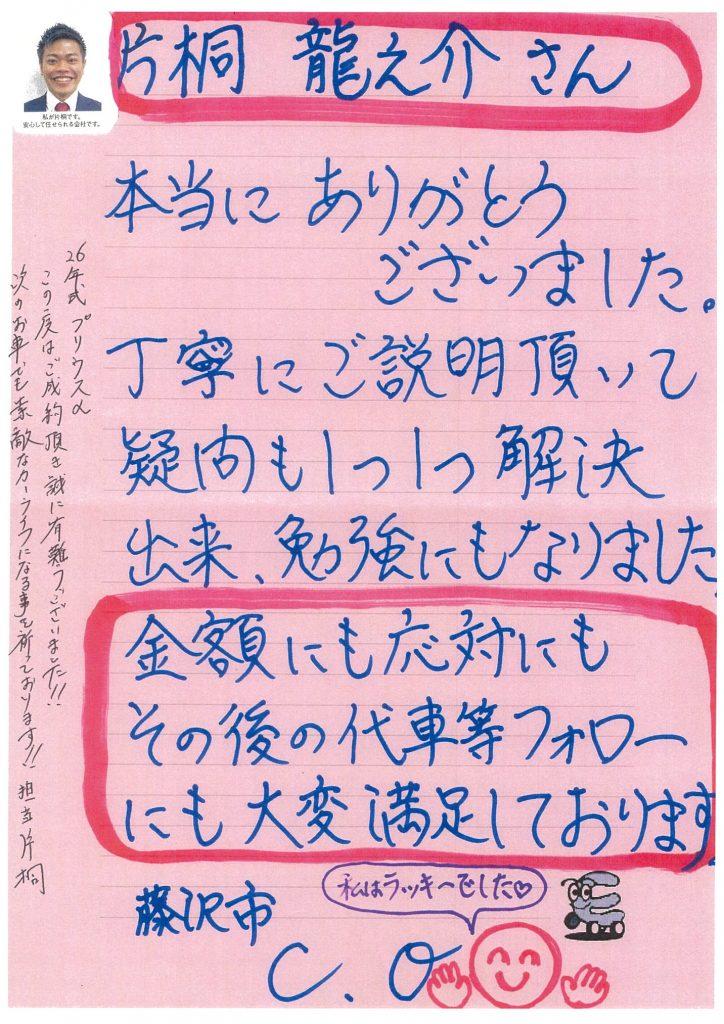 片桐 龍之介 さん
私が片桐です。
安心して任せられる会社です。
本当に ありがとう
ございました。
丁寧にご説明頂いて
疑問も1つ1つ解決
出来、勉強にもなりました
金額にも応対にも
その後の代車等フォロー
にも大変満足しております
藤沢市
C.O
私はラッキーでした♡
26年式 プリウスα
この度はご成約頂き誠に有難うございました!!
次のお車でも素敵なカーライフになる事を祈っております!! 担当片桐